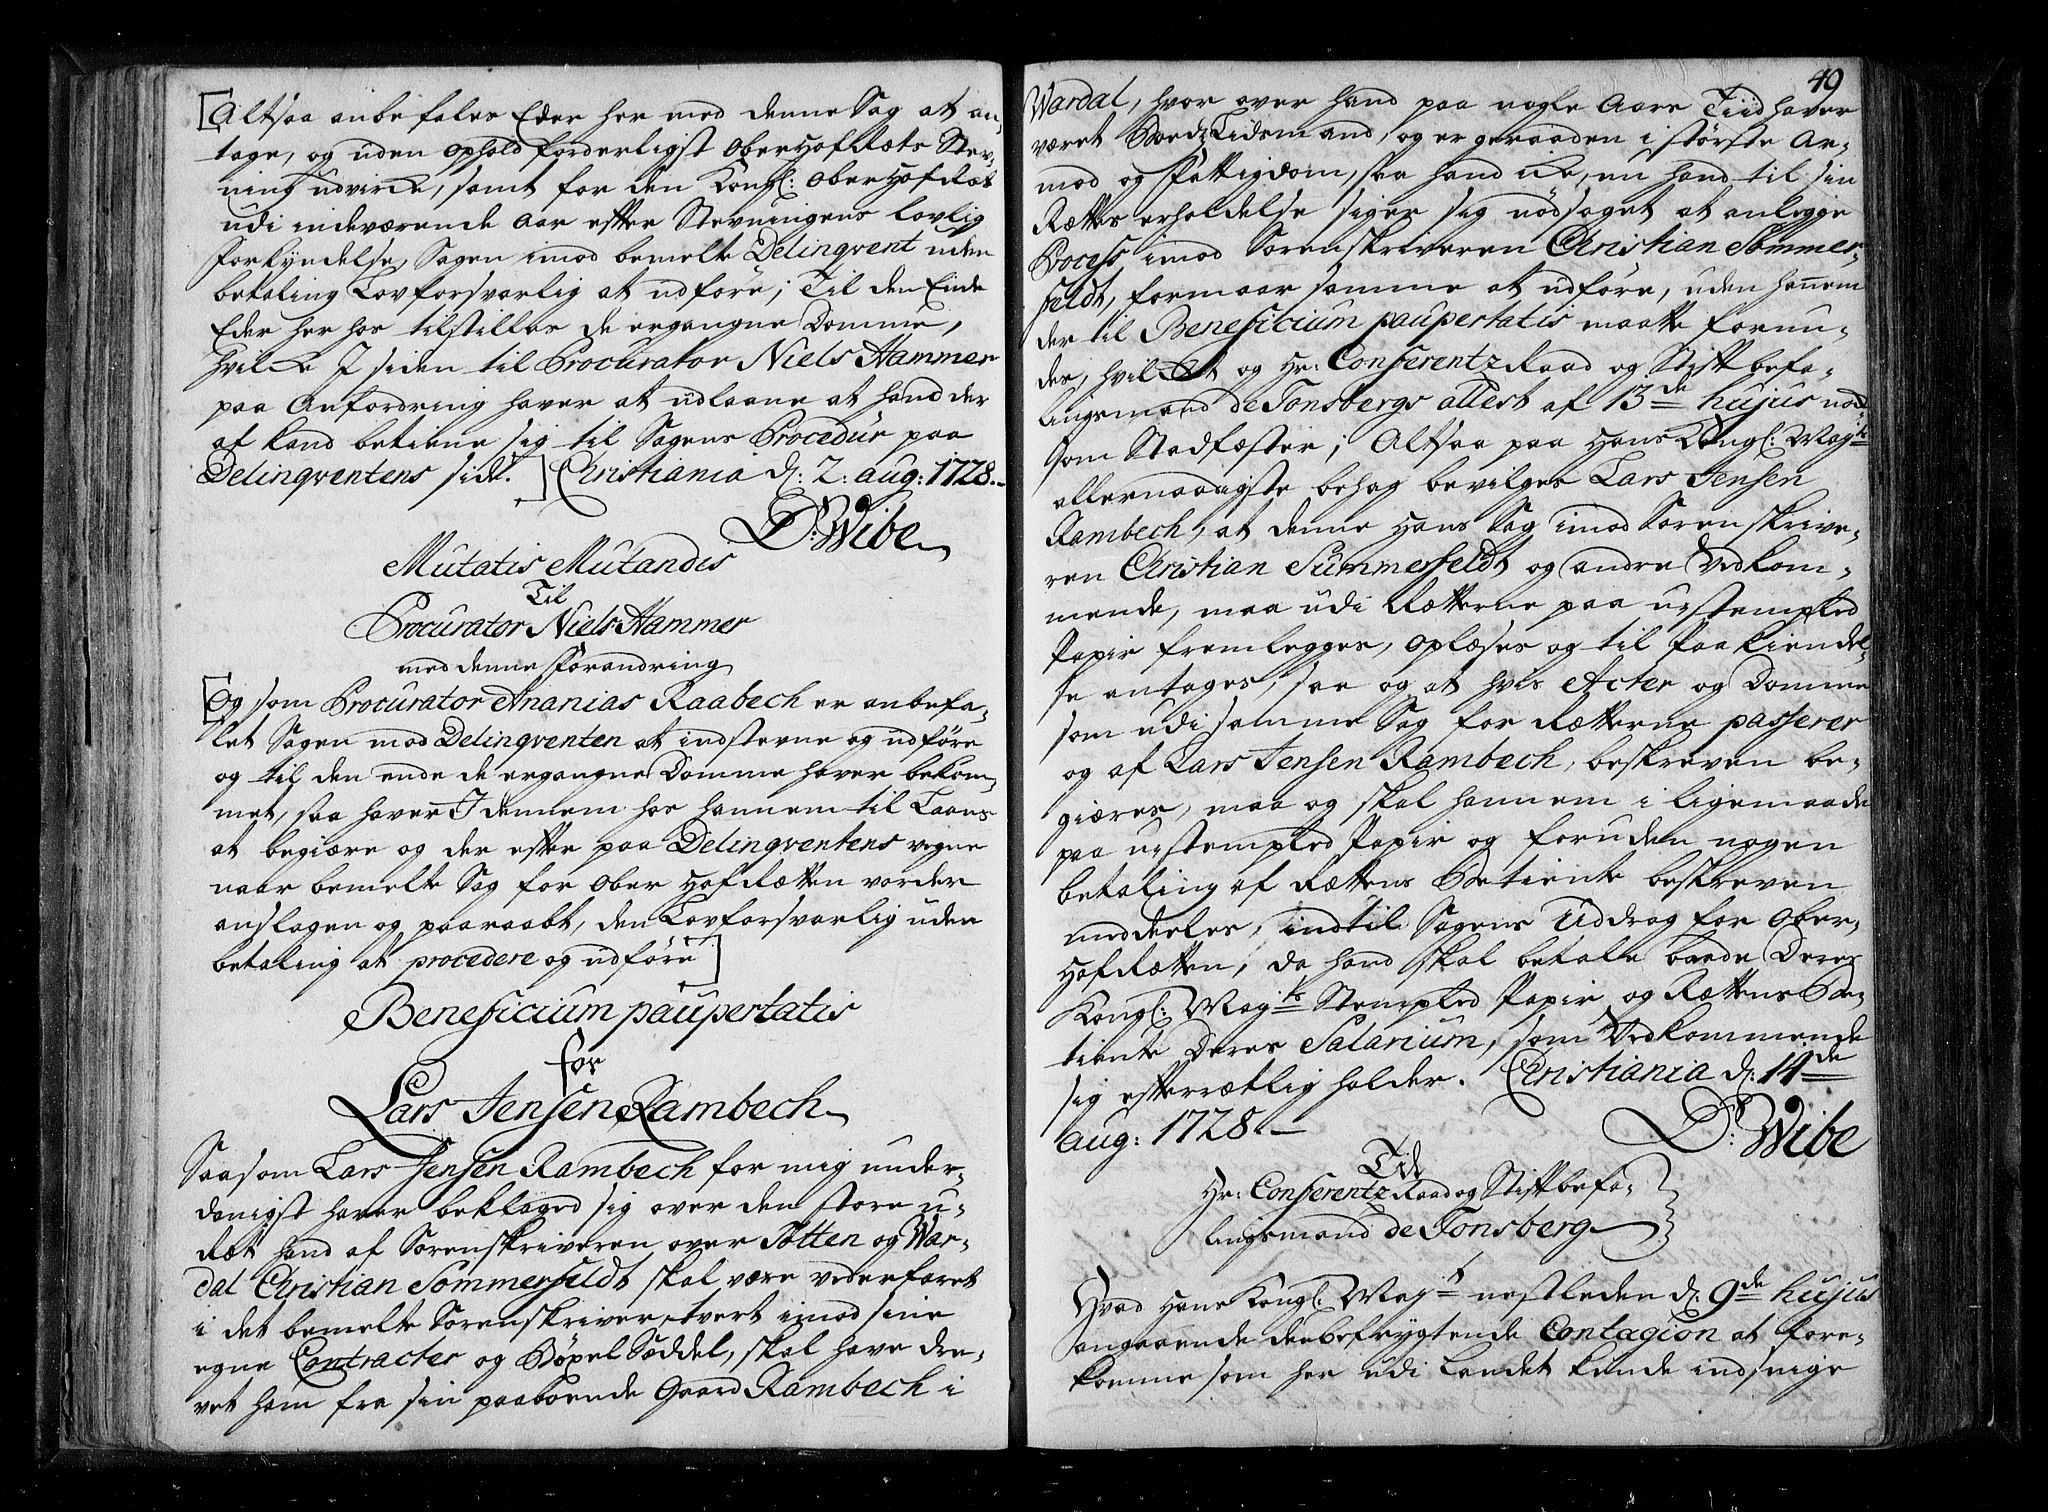 [Altsaa anbefales Eder her med denne Sag at an-
tage, og uden ophold forderligst OberHofRæts Stev-
ning udvirke, samt for den Kongl: OberHofRæt
udi indeværende Aar effter Stevningens lovlig
forkyndelse, Sagen imod bemelte Delinqvent uden
betaling Lovforsvarlig at udføre; Til den Ende
Eder her hos tilstilles de ergangne Domme,
hvilke I siden til Procurator Niels Hammer
paa Anfordring haver at udlaane at hand der
af kand betiene sig til Sagens Procedür paa
Delinqventens side.] Christiania d: 2: aug: 1728.
D: Wibe
Mutatis Mutandis
Til
Procurator Niels Hammer
med denne Forandring
[Og som Procurator Ananias Raabech er anbefa-
let Sagen mod Delinqventen at indstevne og udføre
og til den ende de ergangne Domme haver bekom-
met, saa haver I dennem hos hannem til Laans
at begiære og der effter paa Delinqventens vegne
naar bemelte Sag for Ober HofRætten vorder
anslagen og paaraabt, den Lovforsvarlig uden
betaling at procedere og udføre]
Beneficium paupertatis
for
Lars Jensen Rambech
Saasom Lars Jensen Rambech for mig under-
danigst haver beklaged sig over den store u-
Ræt hand af Sorenskriveren over Totten og War-
dal Christian Sommerfeldt skal være vederfaret
i det bemelte Sorenskriver, tvert imod sine
egne Contracter og Böxel Seddel, skal have dre-
vet ham fra sin paaboende Gaard Rambech i
49
Wardal, hvor over hand paa nogle Aars Tiid haver
været Huus Tidsmand, og er geraaden i største Ar-
mod og Fattigdom, saa hand ike, nu hand til sin
Rættes erholdelse siger sig nødsaget at anlegge
Process imod Sorenskriveren Christian Sommer-
feldt, formaar samme at udføre, uden hannem
der til Beneficium paupertatis maatte forun-
des, hvilket og Hr: ConferentzRaad og Stiftbefa-
lingsmand de Tonsbergs attest af 13de hujus nok-
som Stadfæster; Altsaa paa Hans Kongl: Mayts
allernaadigste behag bevilges Lars Jensen
Rambech, at denne Hans Sag imod Sorenskrive-
ren Christian Summerfeldt og andre Vedkom-
mende, maa udi Rætterne paa ustempled
Papir fremlegges, oplæses og til Paakiendel-
se antages, saa og at hvis Acter og Domme
som udi samme Sag for Rætterne passerer
og af Lars Jensen Rambech, beskreven be-
giæres, maa og skal hannem i ligemaade
paa ustempled Papir og foruden nogen
betaling af Rættens Betiente beskreven
meddeeles, indtil Sagens Uddrag for Ober-
HofRætten, da hand skal betale baade Deres
Kongl: Mayts Stempled Papir og Rættens Be-
tiente Deres Salarium, som Vedkommende
sig efterrætlig holder. Christiania d: 14de
aug: 1728.
D: Wibe
Til
Hr: Conferentz Raad og Stiftbefa-
lingsmand de Tonsberg
Hvad Hans Kongl: Mayts nestleden d: 9de hujus
angaaende den befrygtende Contagion at fore-
komme som her udi Landet kunde indsnige